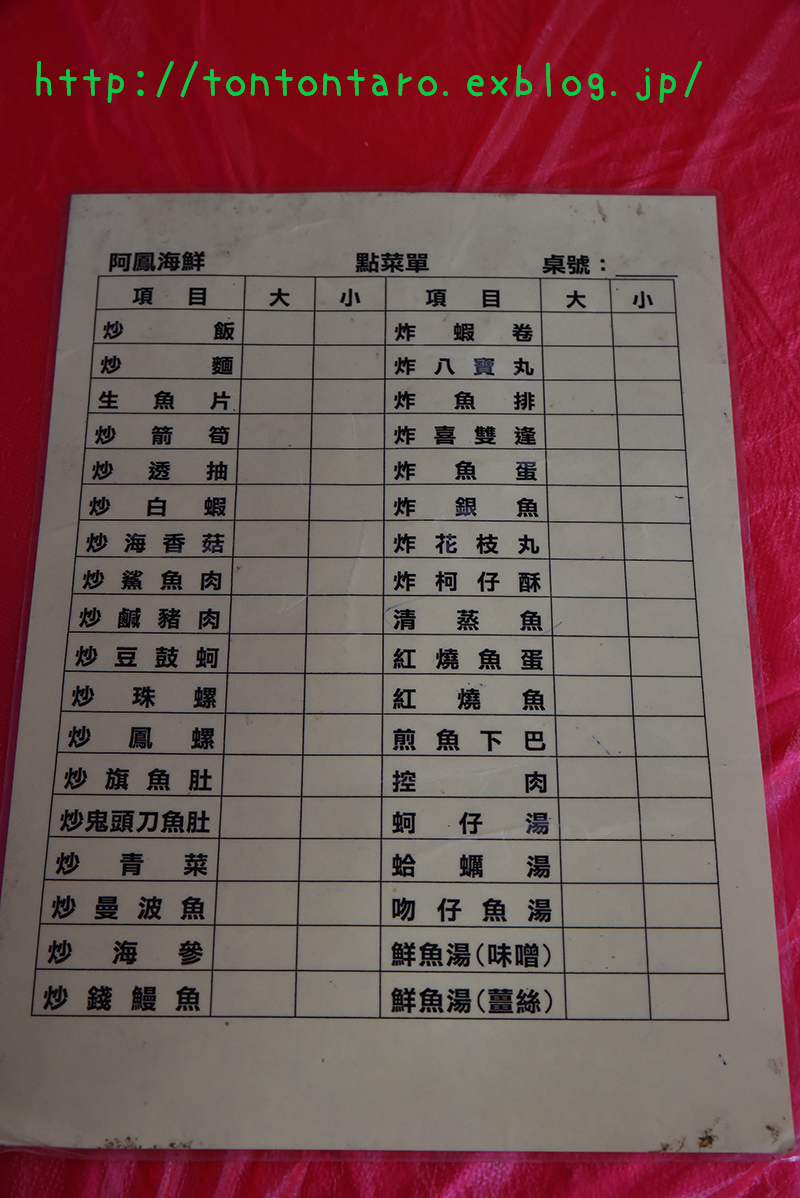 http://tontontaro.exblog.jp/
阿鳳海鮮 點菜單 桌號：
項目 大 小 項目 大 小
炒飯 炸蝦卷
炒麵 炸八寶丸
生魚片 炸魚排
炒箭筍 炸喜雙逢
炒透抽 炸魚蛋
炒白蝦 炸銀魚
炒海香菇 炸花枝丸
炒鯊魚肉 炸柯仔酥
炒鹹豬肉 清蒸魚
炒豆鼓蚵 紅燒魚蛋
炒珠螺 紅燒魚
炒鳳螺 煎魚下巴
炒旗魚肚 控肉
炒鬼頭刀魚肚 蚵仔湯
炒青菜 蛤蠣湯
炒曼波魚 吻仔魚湯
炒海參 鮮魚湯（味噌）
炒錢鰻魚 鮮魚湯（薑絲）